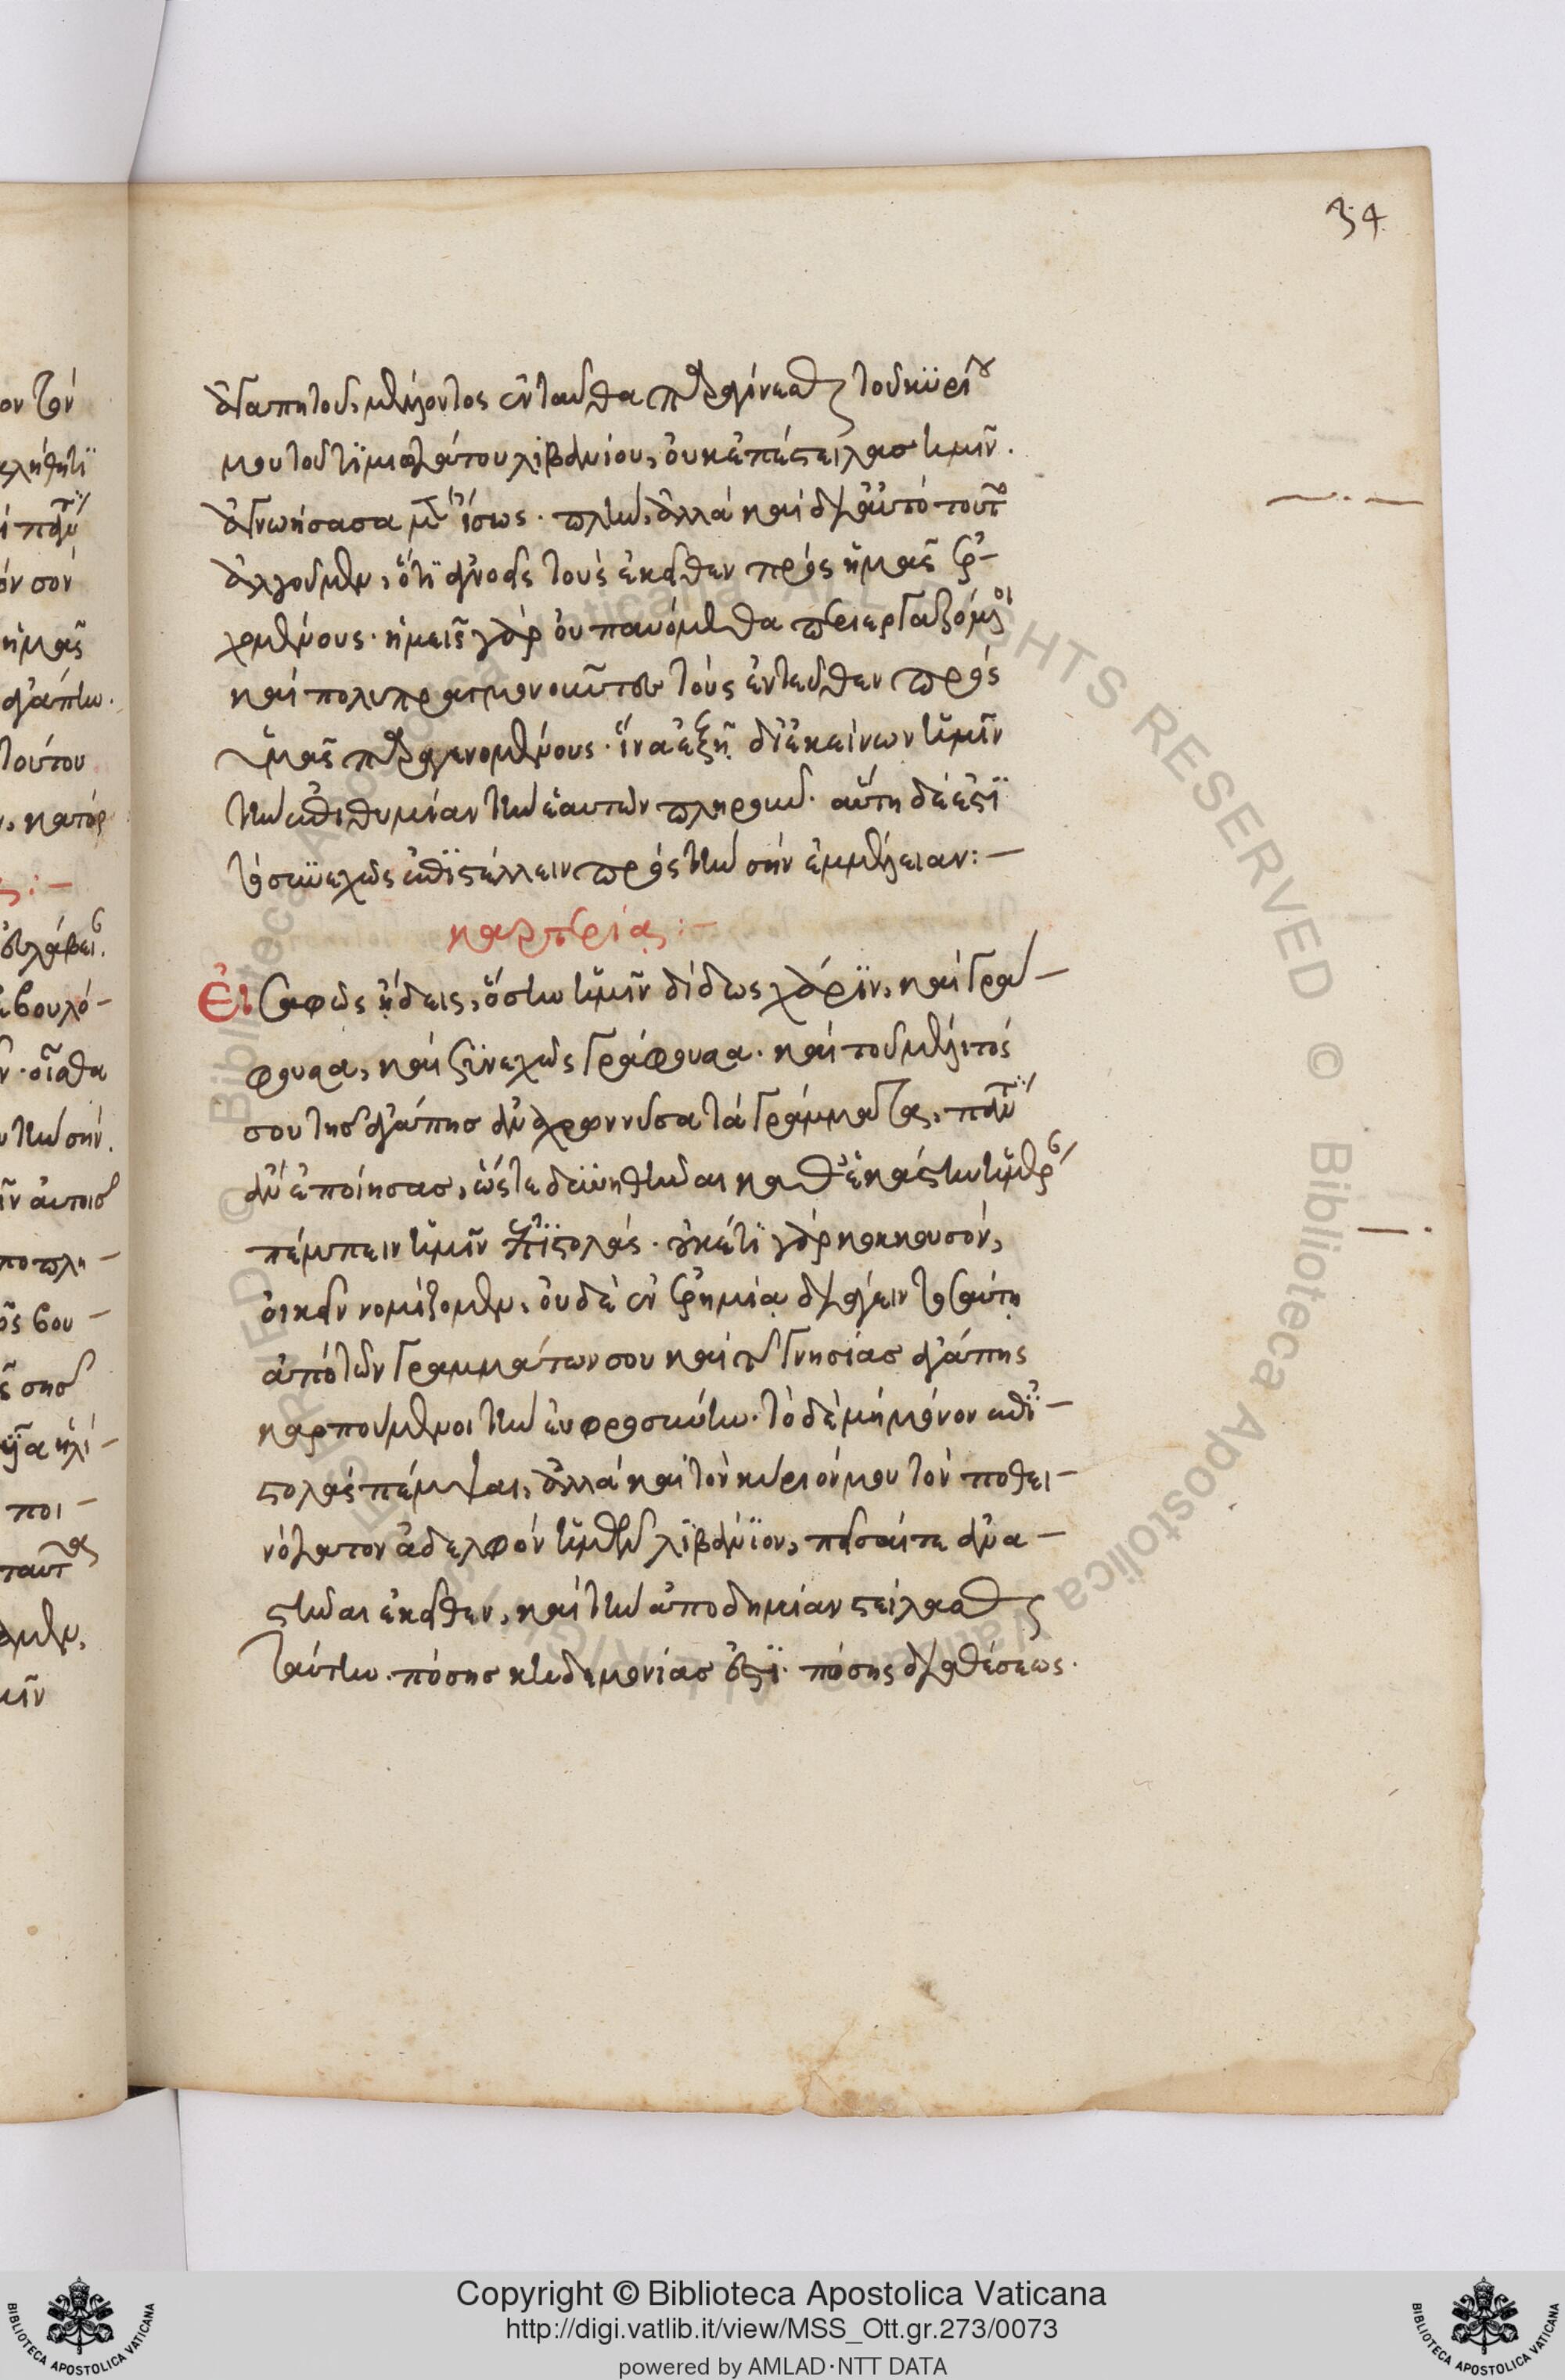 34
ἀγαπητοῦ, μέλλοντος ἐνταῦθα παραγίνεσθαι τοῦ κυρίου
μου τοῦ τιμιωτάτου λιβανίου, οὐκ ἐπέστειλας ἡμῖν.
ἀγνοήσασα μὲν ἴσως. πλὴν, ἀλλὰ καὶ δι' αὐτὸ τοῦτο
ἀλγοῦμεν, ὅτι ἀγνοεῖς τοὺς ἐκεῖθεν πρὸς ἡμᾶς ἐρ-
χομένους. ἡμεῖς γὰρ οὐ παυόμεθα περιεργαζόμενοι
καὶ πολυπραγμονοῦντες τοὺς ἐντεῦθεν πρὸς
ὑμᾶς παραγενομένους. ἵνα ἐξῇ δι' ἐκείνων ἡμῖν
τὴν ἐπιθυμίαν τὴν ἑαυτῶν πληροῦν. αὕτη δέ ἐστι
τὸ συνεχῶς ἐπιστέλλειν πρὸς τὴν σὴν ἐμμέλειαν:-
καρτερίας:-
Εἰ σαφῶς ᾔδεις, ὅσην ἡμῖν δίδως χάριν, καὶ γρά-
φουσα, καὶ συνεχῶς γράφουσα. καὶ τοῦ μέλιτός
σου τῆς ἀγάπης ἀναχρωννύσα τὰ γράμματα, πάντα
ἂν ἐποίησας, ὥστε δυνηθῆναι καθ' ἑκάστην ἡμέραν
πέμπειν ἡμῖν ἐπιστολάς. οὐκέτι γὰρ κουκουσὸν,
οἰκεῖν νομίζομεν, οὐδὲ ἐν ἐρημίᾳ διάγειν τοσαύτη
ἀπὸ τῶν γραμμάτων σου καὶ τῆς γνησίας ἀγάπης
καρπούμενοι τὴν εὐφροσύνην. τὸ δὲ μὴ μόνον ἐπι-
στολὰς πέμψαι, ἀλλὰ καὶ τὸν κύριόν μου τὸν ποθει-
νότατον ἀδελφὸν ἡμῶν λιβάνιον, πεῖσαί τε ἀνα-
στῆναι ἐκεῖθεν, καὶ τὴν ἀποδημίαν στείλασθαι
ταύτην. πόσης κηδεμονίας ἐστί. πόσης διαθέσεως.
Copyright © Biblioteca Apostolica Vaticana
http://digi.vatlib.it/view/MSS_Ott.gr.273/0073
powered by AMLAD·NTT DATA
BIBLIOTECA APOSTOLICA VATICANA
BIBLIOTECA APOSTOLICA VATICANA